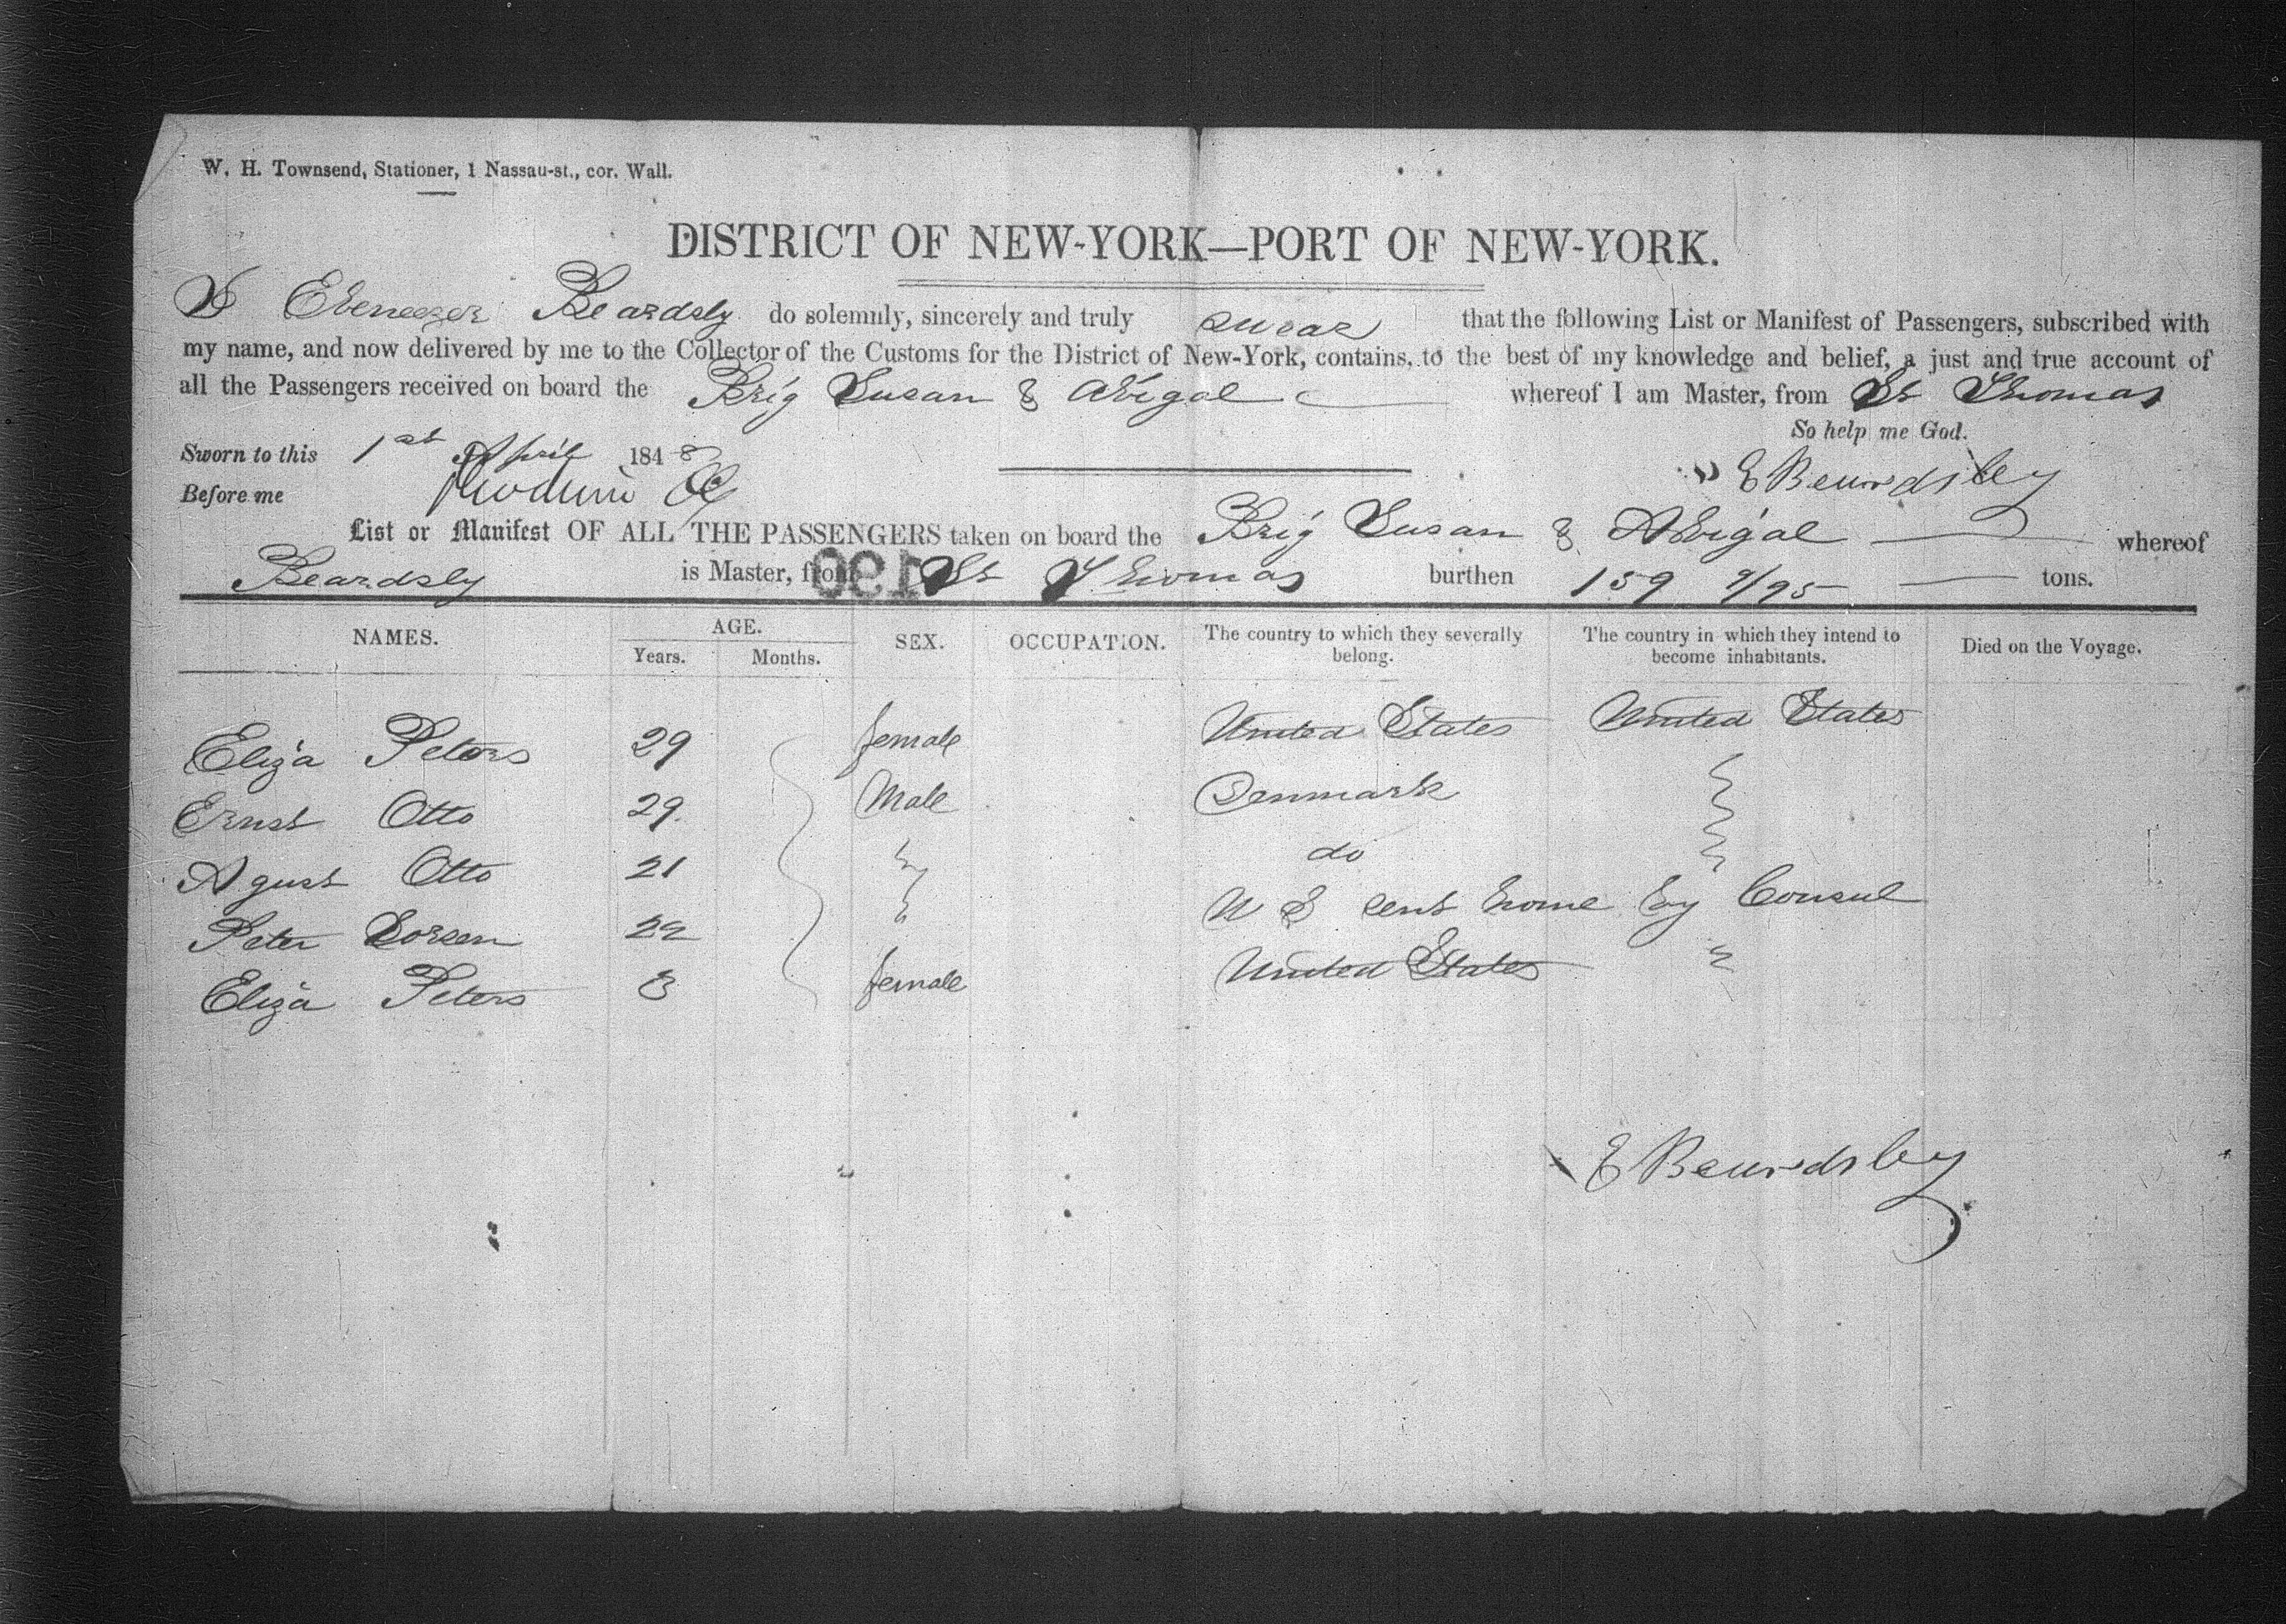 W. H. Townsend, Stationer, 1 Nassau-st., cor. Wall.
DISTRICT OF NEW-YORK—PORT OF NEW-YORK.
I Ebenezer Beardsly do solemnly, sincerely and truly swear that the following List or Manifest of Passengers, subscribed with
my name, and now delivered by me to the Collector of the Customs for the District of New-York, contains, to the best of my knowledge and belief, a just and true account of
all the Passengers received on board the Brig Susan & Abigal whereof I am Master, from St Thomas
So help me God.
Sworn to this 1st April 1848
E Beardsley
Before me
List or Manifest OF ALL THE PASSENGERS taken on board the Brig Susan & Abigal whereof
Beardsly is Master, from St Thomas burthen 159 9/95 tons.
190
NAMES. AGE. SEX. OCCUPATION. The country to which they severally belong. The country in which they intend to become inhabitants. Died on the Voyage.
Years. Months.
Eliza Peters 29 female United States United States
Ernst Otto 29. Male Denmark
Agust Otto 21 do
Peter 22 U S sent home by Consul
Eliza Peters 3 female United States "
E Beardsley